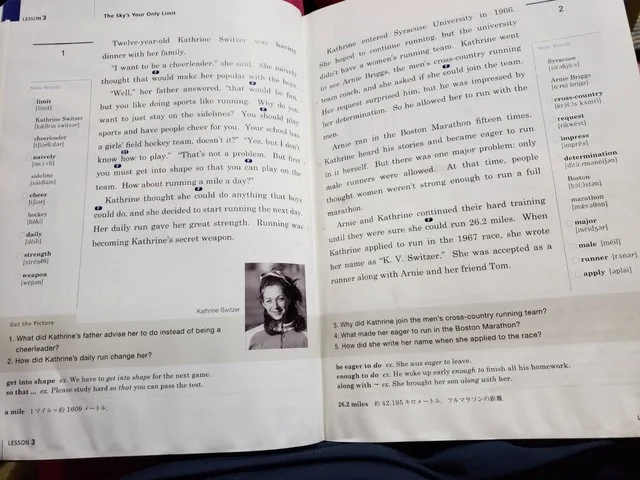 LESSON 3
The Sky's Your Only Limit
1
Twelve-year-old Kathrine Switzer was having
dinner with her family.
"I want to be a cheerleader," she said. She naively
thought that would make her popular with the boys.
"Well," her father answered, "that would be fun,
but you like doing sports like running. Why do you
want to just stay on the sidelines? You should play
sports and have people cheer for you. Your school has
a girls' field hockey team, doesn't it?" "Yes, but I don't
know how to play." "That's not a problem. But first
you must get into shape so that you can play on the
team. How about running a mile a day?"
Kathrine thought she could do anything that boys
could do, and she decided to start running the next day.
Her daily run gave her great strength. Running was
becoming Kathrine's secret weapon.
New Words
limit
[límit]
Kathrine Switzer
cheerleader
naively
sideline
[sáidlàin]
cheer
hockey
daily
[déili]
strength
weapon
[wépən]
Kathrine Switzer
Get the Picture
1. What did Kathrine's father advise her to do instead of being a
cheerleader?
2. How did Kathrine's daily run change her?
get into shape ex. We have to get into shape for the next game.
so that ... ex. Please study hard so that you can pass the test.
a mile 1マイル=約 1609 メートル.
LESSON 3
2
Kathrine entered Syracuse University in 1966.
She hoped to continue running, but the university
didn't have a women's running team. Kathrine went
to see Arnie Briggs, the men's cross-country running
team coach, and she asked if she could join the team.
Her request surprised him, but he was impressed by
her determination. So he allowed her to run with the
men.
Arnie ran in the Boston Marathon fifteen times.
Kathrine heard his stories and became eager to run
in it herself. But there was one major problem: only
male runners were allowed. At that time, people
thought women weren't strong enough to run a full
marathon.
Arnie and Kathrine continued their hard training
until they were sure she could run 26.2 miles. When
Kathrine applied to run in the 1967 race, she wrote
her name as "K. V. Switzer." She was accepted as a
runner along with Arnie and her friend Tom.
New Words
Syracuse
Arnie Briggs
cross-country
request
[rikwést]
impress
[imprés]
determination
Boston
marathon
major
[méidʒər]
male [méil]
runner [rʌ́nər]
apply [əplái]
3. Why did Kathrine join the men's cross-country running team?
4. What made her eager to run in the Boston Marathon?
5. How did she write her name when she applied to the race?
be eager to do ex. She was eager to leave.
enough to do ex. He woke up early enough to finish all his homework.
along with ~ ex. She brought her son along with her.
26.2 miles 約 42.195 キロメートル. フルマラソンの距離.